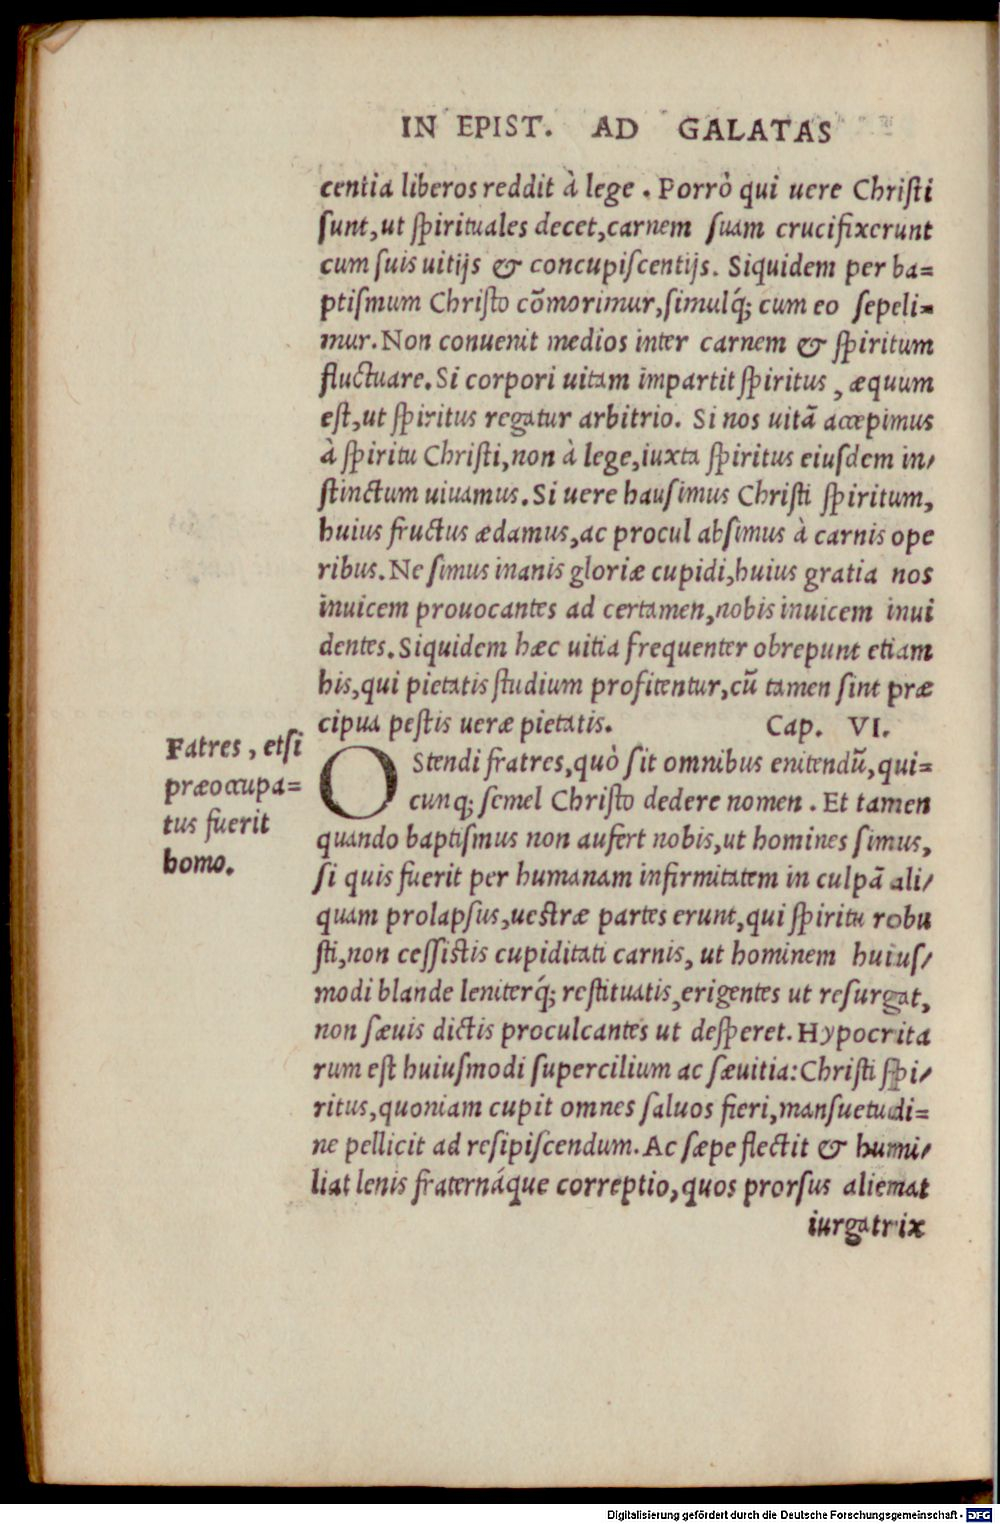 IN EPIST. AD GALATAS
centia liberos reddit à lege . Porrò qui uere Christi
sunt, ut spirituales decet, carnem suam crucifixerunt
cum suis uitijs & concupiscentijs. Siquidem per ba=
ptismum Christo cõmorimur, simulq́; cum eo sepeli=
mur. Non conuenit medios inter carnem & spiritum
fluctuare. Si corpori uitam impartit spiritus , æquum
est, ut spiritus regatur arbitrio. Si nos uitã accepimus
à spiritu Christi, non à lege, iuxta spiritus eiusdem in/
stinctum uiuamus. Si uere hausimus Christi spiritum,
huius fructus ædamus, ac procul absimus à carnis ope
ribus. Ne simus inanis gloriæ cupidi, huius gratia nos
inuicem prouocantes ad certamen, nobis inuicem inui
dentes. Siquidem hæc uitia frequenter obrepunt etiam
his, qui pietatis studium profitentur, cũ tamen sint præ
cipua pestis ueræ pietatis. Cap. VI.
Fatres , etsi
præoccupa=
tus fuerit
homo.
OStendi fratres, quò sit omnibus enitendũ, qui=
cunq; semel Christo dedere nomen . Et tamen
quando baptismus non aufert nobis, ut homines simus,
si quis fuerit per humanam infirmitatem in culpã ali/
quam prolapsus, uestræ partes erunt, qui spiritu robu
sti, non cessistis cupiditati carnis, ut hominem huius/
modi blande leniterq́; restituatis, erigentes ut resurgat,
non sæuis dictis proculcantes ut desperet. Hypocrita
rum est huiusmodi supercilium ac sæuitia: Christi spi/
ritus, quoniam cupit omnes saluos fieri, mansuetudi=
ne pellicit ad resipiscendum. Ac sæpe flectit & humi/
liat lenis fraternáque correptio, quos prorsus alienat
iurgatrix
Digitalisierung gefördert durch die Deutsche Forschungsgemeinschaft - DFG